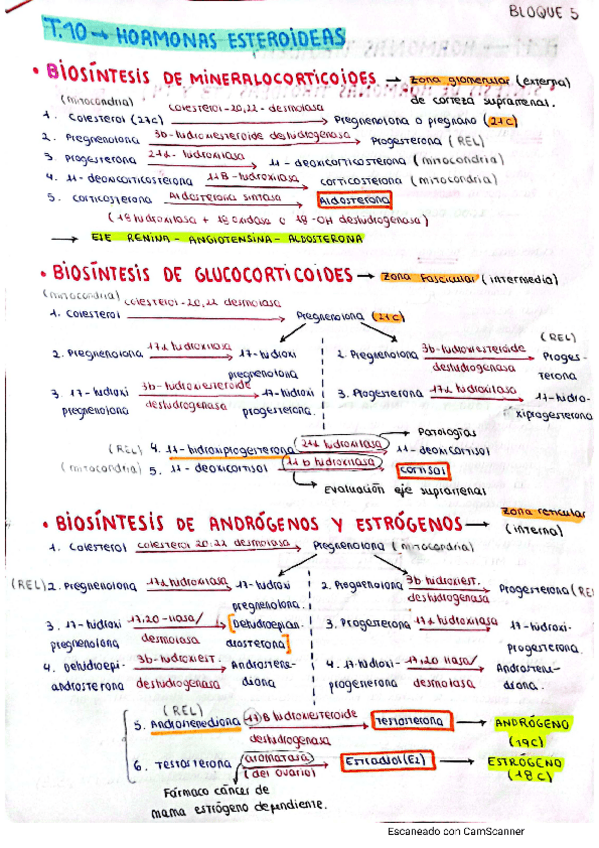 BLOQUE 5
T.10 → HORMONAS ESTEROIDEAS
• BIOSÍNTESIS DE MINERALOCORTICOIDES → zona glomerular (externa)
de corteza suprarrenal.
(mitocondria) colesterol-20,22-desmolasa
1. Colesterol (27c) → Pregnenolona o pregnano (21c)
2. Pregnenolona 3b-hidroxiesteroide deshidrogenasa → Progesterona (REL)
3. Progesterona 21α-hidroxilasa → 11-deoxicorticosterona (mitocondria)
4. 11-deoxicorticosterona 11B-hidroxilasa → corticosterona (mitocondria)
5. corticosterona Aldosterona sintasa → Aldosterona
(18 hidroxilasa + 18 oxidasa o 18-OH deshidrogenasa)
→ EJE RENINA-ANGIOTENSINA-ALDOSTERONA
• BIOSÍNTESIS DE GLUCOCORTICOIDES → zona Fascicular (intermedia)
(mitocondria) colesterol-20,22 desmolasa
1. Colesterol → Pregnenolona (21c)
2. Pregnenolona 17α hidroxilasa → 17-hidroxi pregnenolona
3. 17-hidroxi pregnenolona 3b-hidroxiesteroide deshidrogenasa → 17-hidroxi progesterona.
(REL)
2. Pregnenolona 3b-hidroxiesteroide deshidrogenasa → Progesterona
3. Progesterona 17α hidroxilasa → 17-hidroxiprogesterona
Patologías
(REL) 4. 17-hidroxiprogesterona 21α hidroxilasa → 11-deoxicortisol
(mitocondria) 5. 11-deoxicortisol 11b hidroxilasa → cortisol
Evaluación eje suprarrenal
• BIOSÍNTESIS DE ANDRÓGENOS Y ESTRÓGENOS → zona reticular
(interna)
1. Colesterol colesterol 20:22 desmolasa → Pregnenolona (mitocondria)
(REL) 2. Pregnenolona 17α hidroxilasa → 17-hidroxi pregnenolona.
3. 17-hidroxi pregnenolona 17,20-liasa/ desmolasa → [Dehidroepiandrosterona]
4. Dehidroepiandrosterona 3b-hidroxiest. deshidrogenasa → Androstenediona
2. Pregnenolona 3b hidroxiest. deshidrogenasa → Progesterona (REL
3. Progesterona 17α hidroxilasa → 17-hidroxiprogesterona.
4. 17-hidroxiprogenerona 17,20 liasa/ desmolasa → Androstenediona.
(REL)
5. Androstenediona 17B hidroxiesteroide deshidrogenasa → Testosterona → ANDRÓGENO
(19c)
6. Testosterona aromatasa (del ovario) → Estradiol (E2) → ESTRÓGENO
(18c)
Fármaco cáncer de
mama estrógeno dependiente.
Escaneado con CamScanner